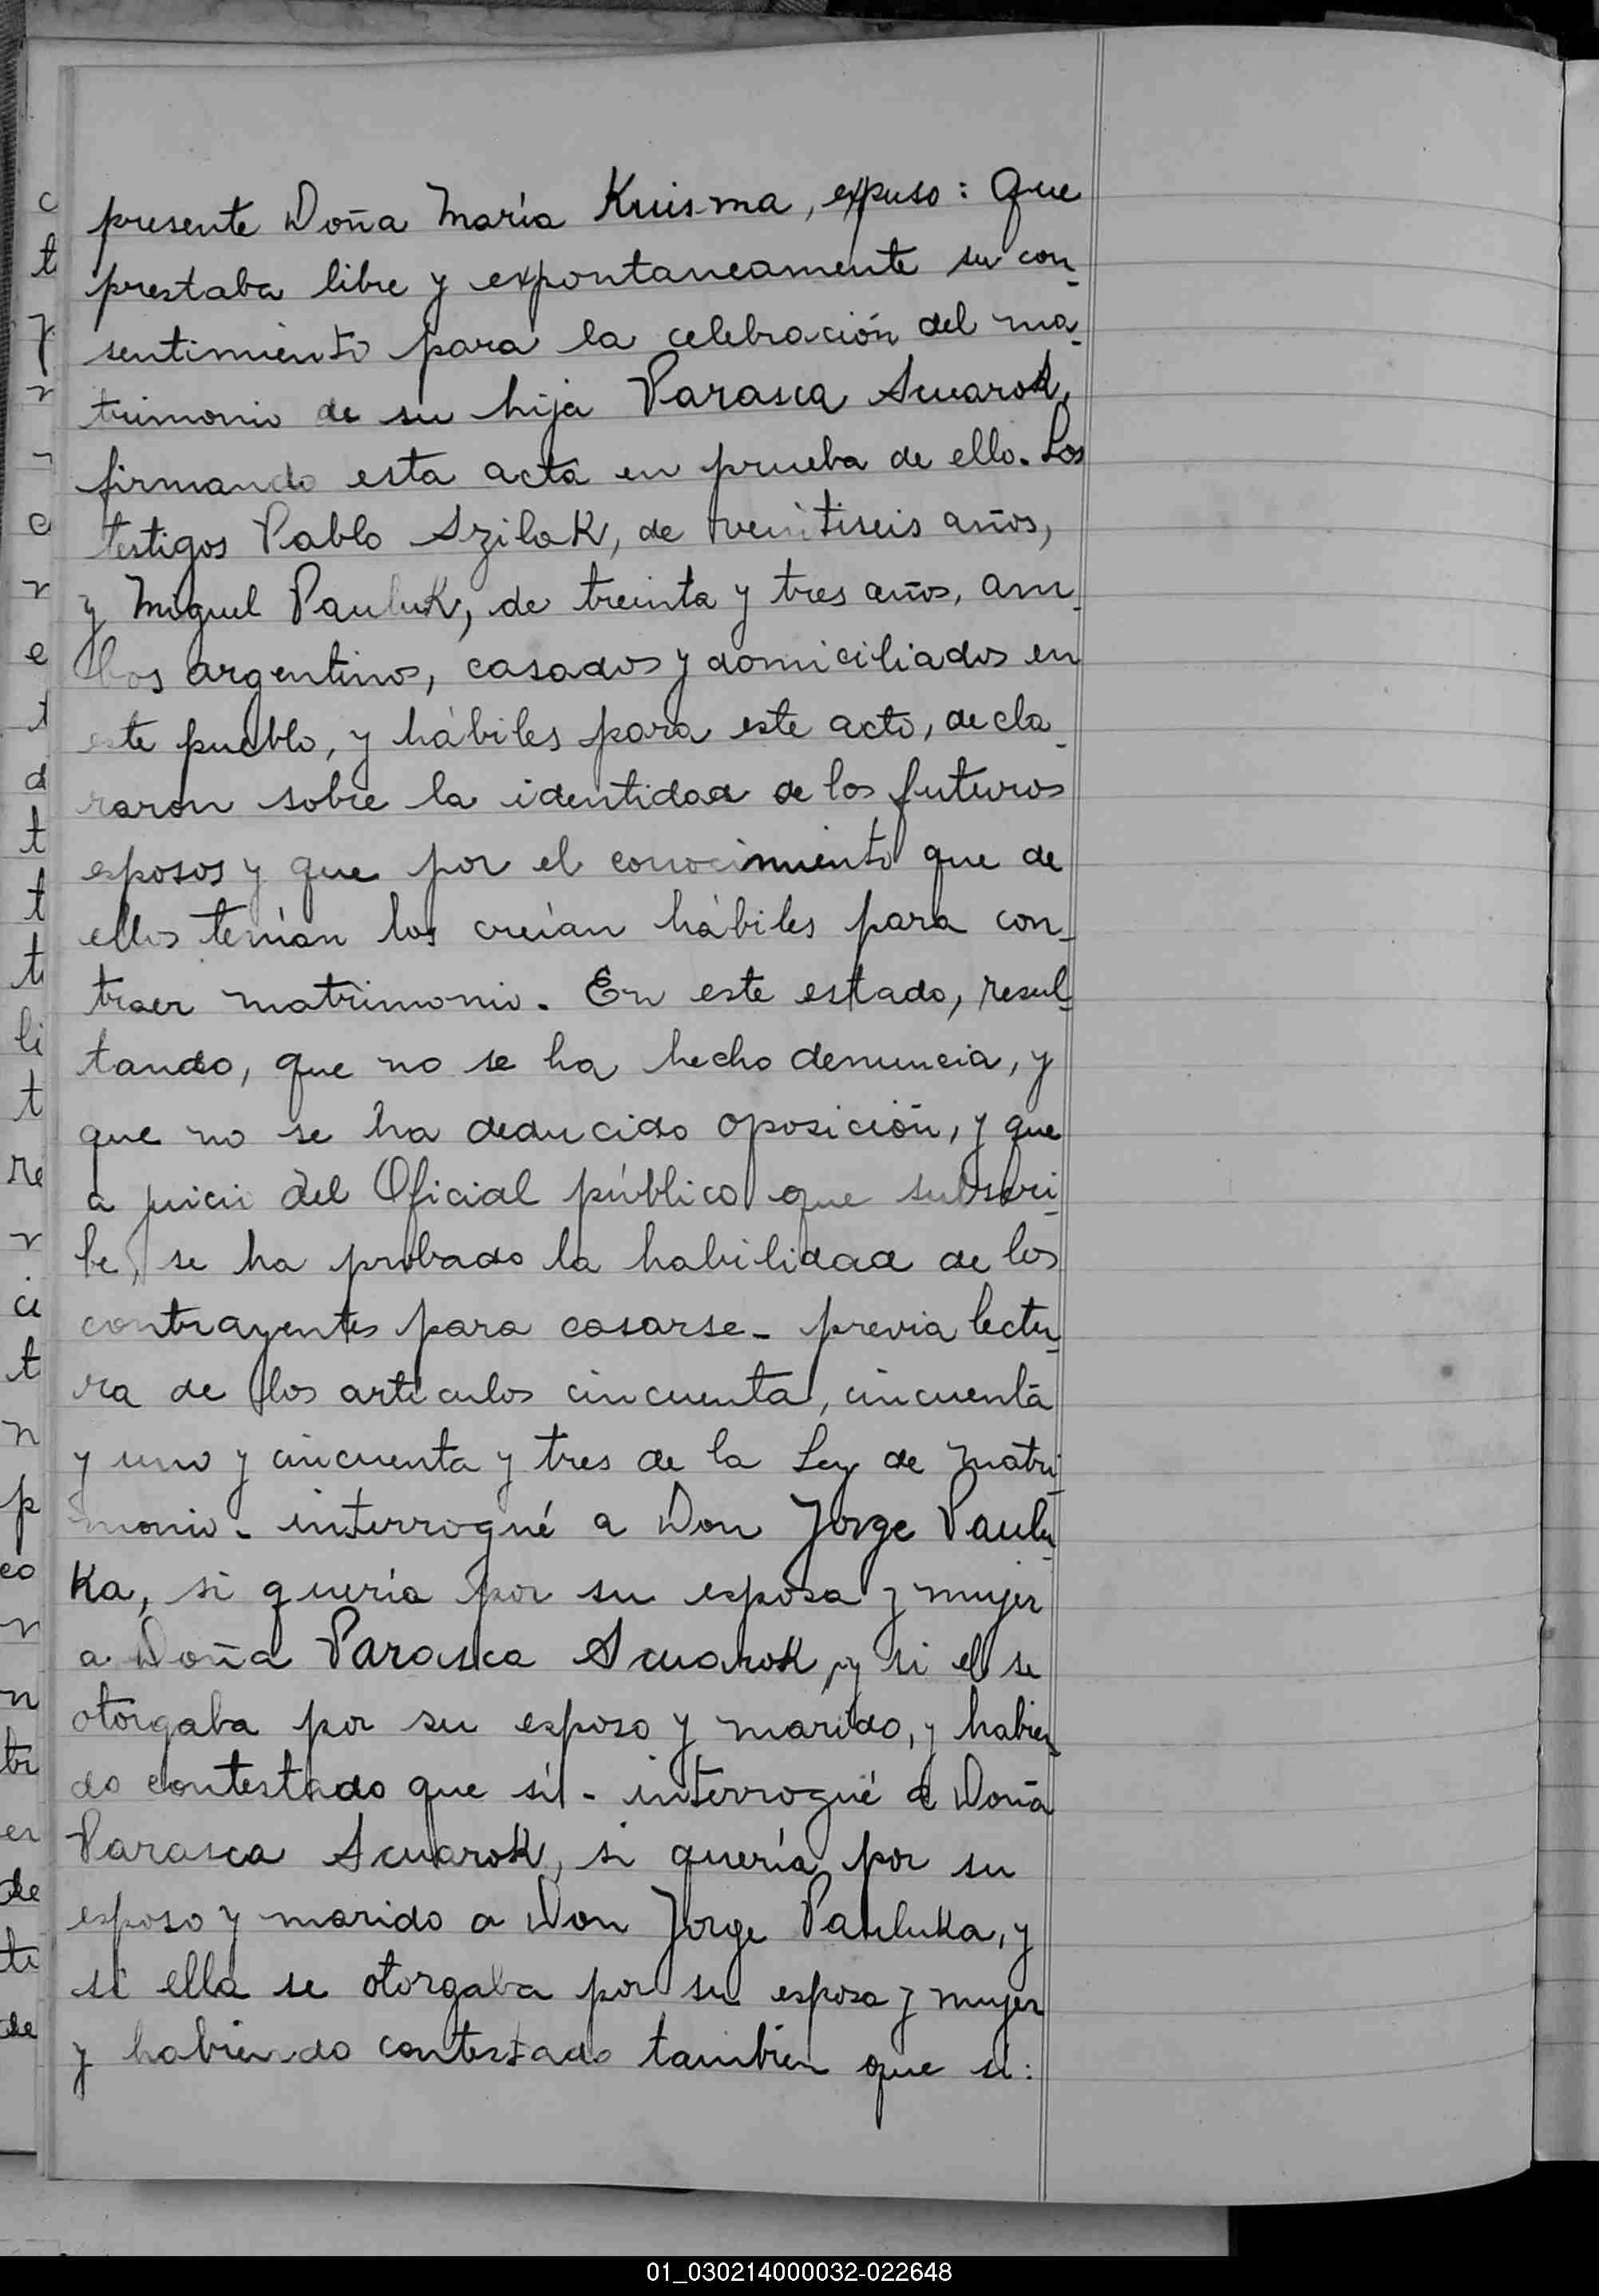 presente Doña María Kuisma, expuso: Que
prestaba libre y expontaneamente su con-
sentimiento para la celebración del ma-
trimonio de su hija Parasca Scuarok,
firmando esta acta en prueba de ello. Los
testigos Pablo Szilak, de veintiseis años,
y Miguel Pauluk, de treinta y tres años, am-
bos argentinos, casados y domiciliados en
este pueblo, y hábiles para este acto, decla-
raron sobre la identidad de los futuros
esposos y que por el conocimiento que de
ellos tenían los creían hábiles para con-
traer matrimonio. En este estado, resul-
tando, que no se ha hecho denuncia, y
que no se ha deducido oposición, y que
a juicio del Oficial público que subscri-
be, se ha probado la habilidad de los
contrayentes para casarse - previa lectu-
ra de los artículos cincuenta, cincuenta
y uno y cincuenta y tres de la Ley de Matri-
monio - interrogué a Don Jorge Paulu-
ka, si quería por su esposa y mujer
a Doña Parasca Scuarok, y si el se
otorgaba por su esposo y marido, y habien-
do contestado que sí - interrogué a Doña
Parasca Scuarok, si quería por su
esposo y marido a Don Jorge Pauluka, y
si ella se otorgaba por su esposa y mujer
y habiendo contestado tambien que sí:
01_030214000032-022648